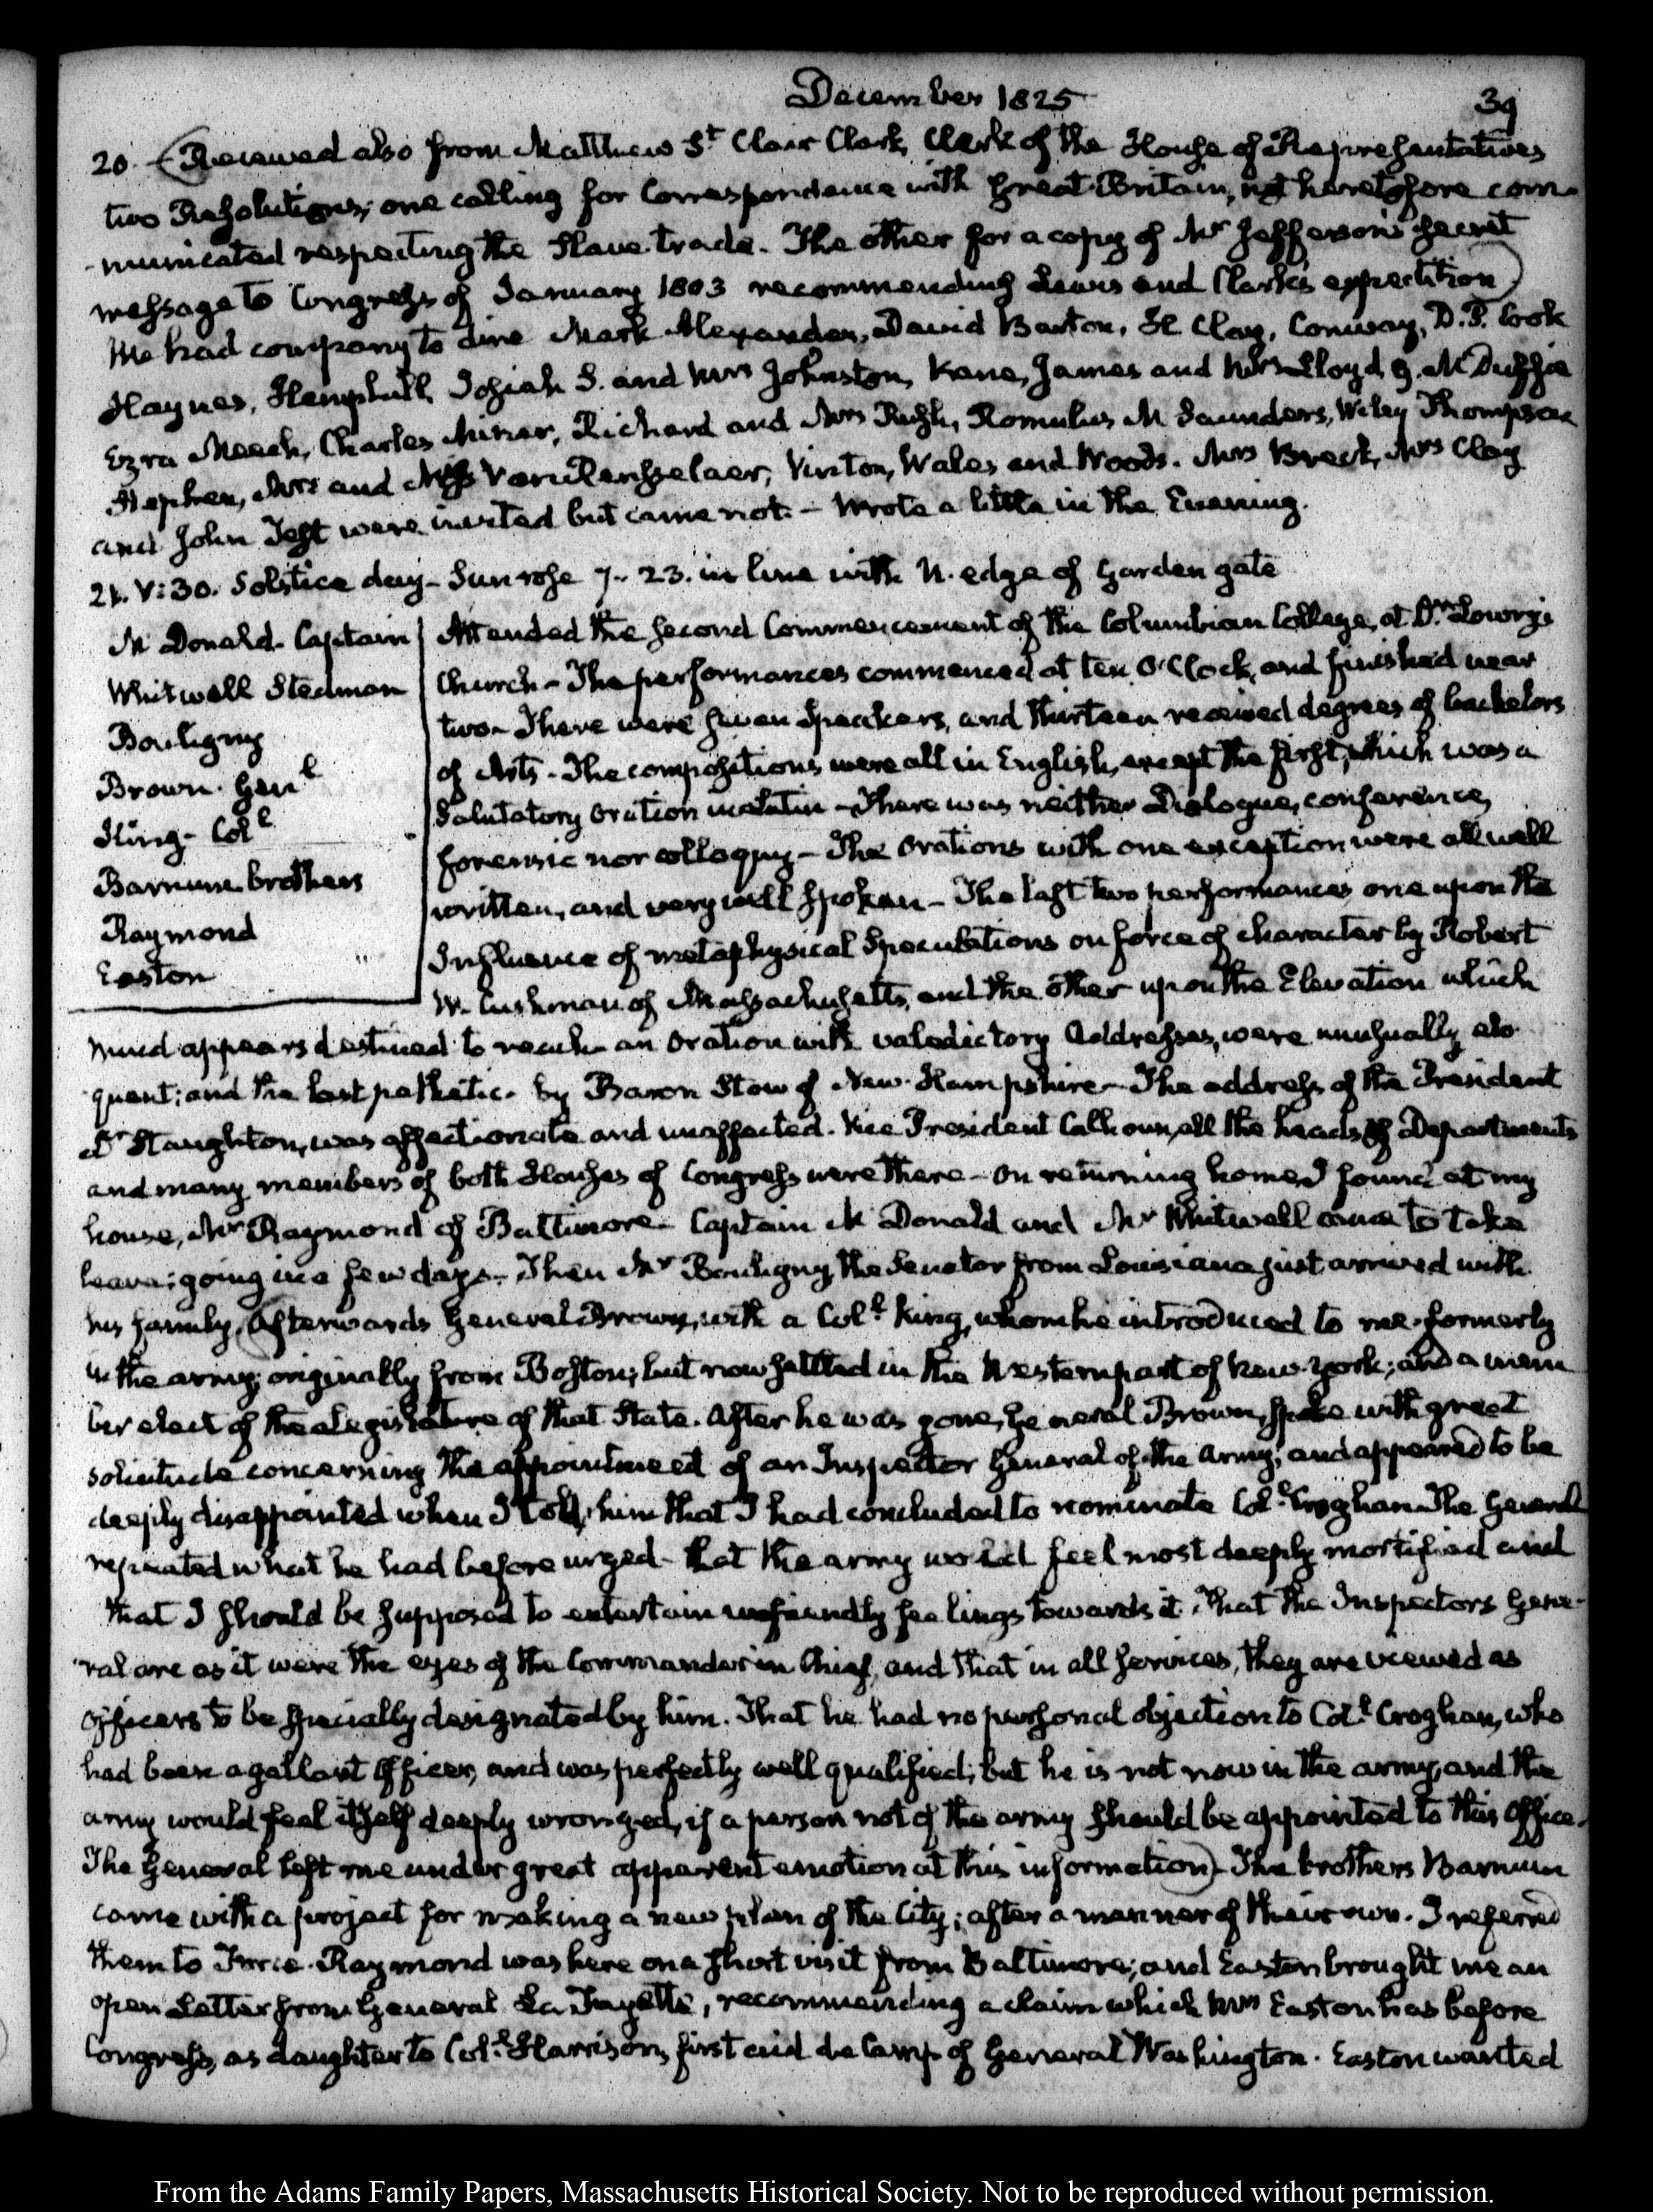 December 1825
39
20. (Received also from Matthew St Clair Clark, Clerk of the House of Representatives
two Resolutions; one calling for Correspondence with Great-Britain, not heretofore com-
-municated respecting the Slave trade. The other for a copy of Mr Jefferson's secret
message to Congress of January 1803 recommending Lewis and Clarke's expedition)
We had company to dine Mark Alexander, David Barton, H Clay, Conway, D. P. Cook
Haynes, Hemphill, Josiah S. and Mrs Johnston, Kane, James and Mrs Lloyd, G. McDuffie
Ezra Meech, Charles Miner, Richard and Mrs Rush, Romulus M Saunders, Wiley Thompson
Stephen, Mrs and Miss Van Rensselaer, Vinton, Wales and Woods. Mrs Breck, Mrs Clay
and John Test were invited but came not. - Wrote a little in the Evening.
21. V:30. Solstice day - Sun rose 7.. 23. in line with N. edge of Garden gate
Mc Donald. Captain
Whitwell Stedman
Bouligny
Brown. Genl
King - Coll
Barnum. brothers
Raymond
Easton
Attended the second Commencement of the Columbian College, at Dr Lowry's
Church - The performances commenced at ten O'Clock, and finished near
two - There were seven Speakers, and thirteen received degrees of bachelors
of Arts - The compositions were all in English, except the first, which was a
Salutatory Oration in Latin - There was neither Dialogue, conference,
forensic nor colloquy - The Orations with one exception were all well
written, and very well spoken - The last two performances one upon the
Influence of metaphysical Speculations on force of character by Robert
W. Cushman of Massachusetts, and the other upon the Elevation which
mind appears destined to reach - an Oration with valedictory Addresses, were unusually elo-
quent; and the last pathetic. by Baron Stow of New-Hampshire - The address of the President
Dr Staughton, was affectionate and unaffected. Vice President Calhoun, all the heads of Departments
and many members of both Houses of Congress were there - On returning home I found at my
house, Mr Raymond of Baltimore - Captain Mc Donald and Mr Whitwell came to take
leave; going in a few days. Then Mr Bouligny the Senator from Louisiana just arrived with
his family. (Afterwards General Brown, with a Coll King, whom he introduced to me. formerly
in the army; originally from Boston; but now settled in the Western part of New-York; and a mem
ber elect of the Legislature of that State. After he was gone, General Brown, spoke with great
solicitude concerning the appointment of an Inspector General of the Army; and appeared to be
deeply disappointed when I told him that I had concluded to nominate Coll Croghan. The General
repeated what he had before urged - that the army would feel most deeply mortified and
that I should be supposed to entertain unfriendly feelings towards it. That the Inspectors Gene-
ral are as it were the eyes of the Commander in Chief, and that in all services, they are viewed as
officers to be specially designated by him. That he had no personal objection to Coll Croghan, who
had been a gallant Officer, and was perfectly well qualified; but he is not now in the army, and the
army would feel itself deeply wronged, if a person not of the army should be appointed to this Office.
The General left me under great apparent emotion at this information) - The brothers Barnum
came with a project for making a new plan of the City; after a manner of their own. I referred
them to Force. Raymond was here on a short visit from Baltimore; and Easton brought me an
open Letter from General La Fayette, recommending a claim which Mrs Easton has before
Congress, as daughter to Coll Harrison, first aid de Camp of General Washington. Easton wanted
From the Adams Family Papers, Massachusetts Historical Society. Not to be reproduced without permission.